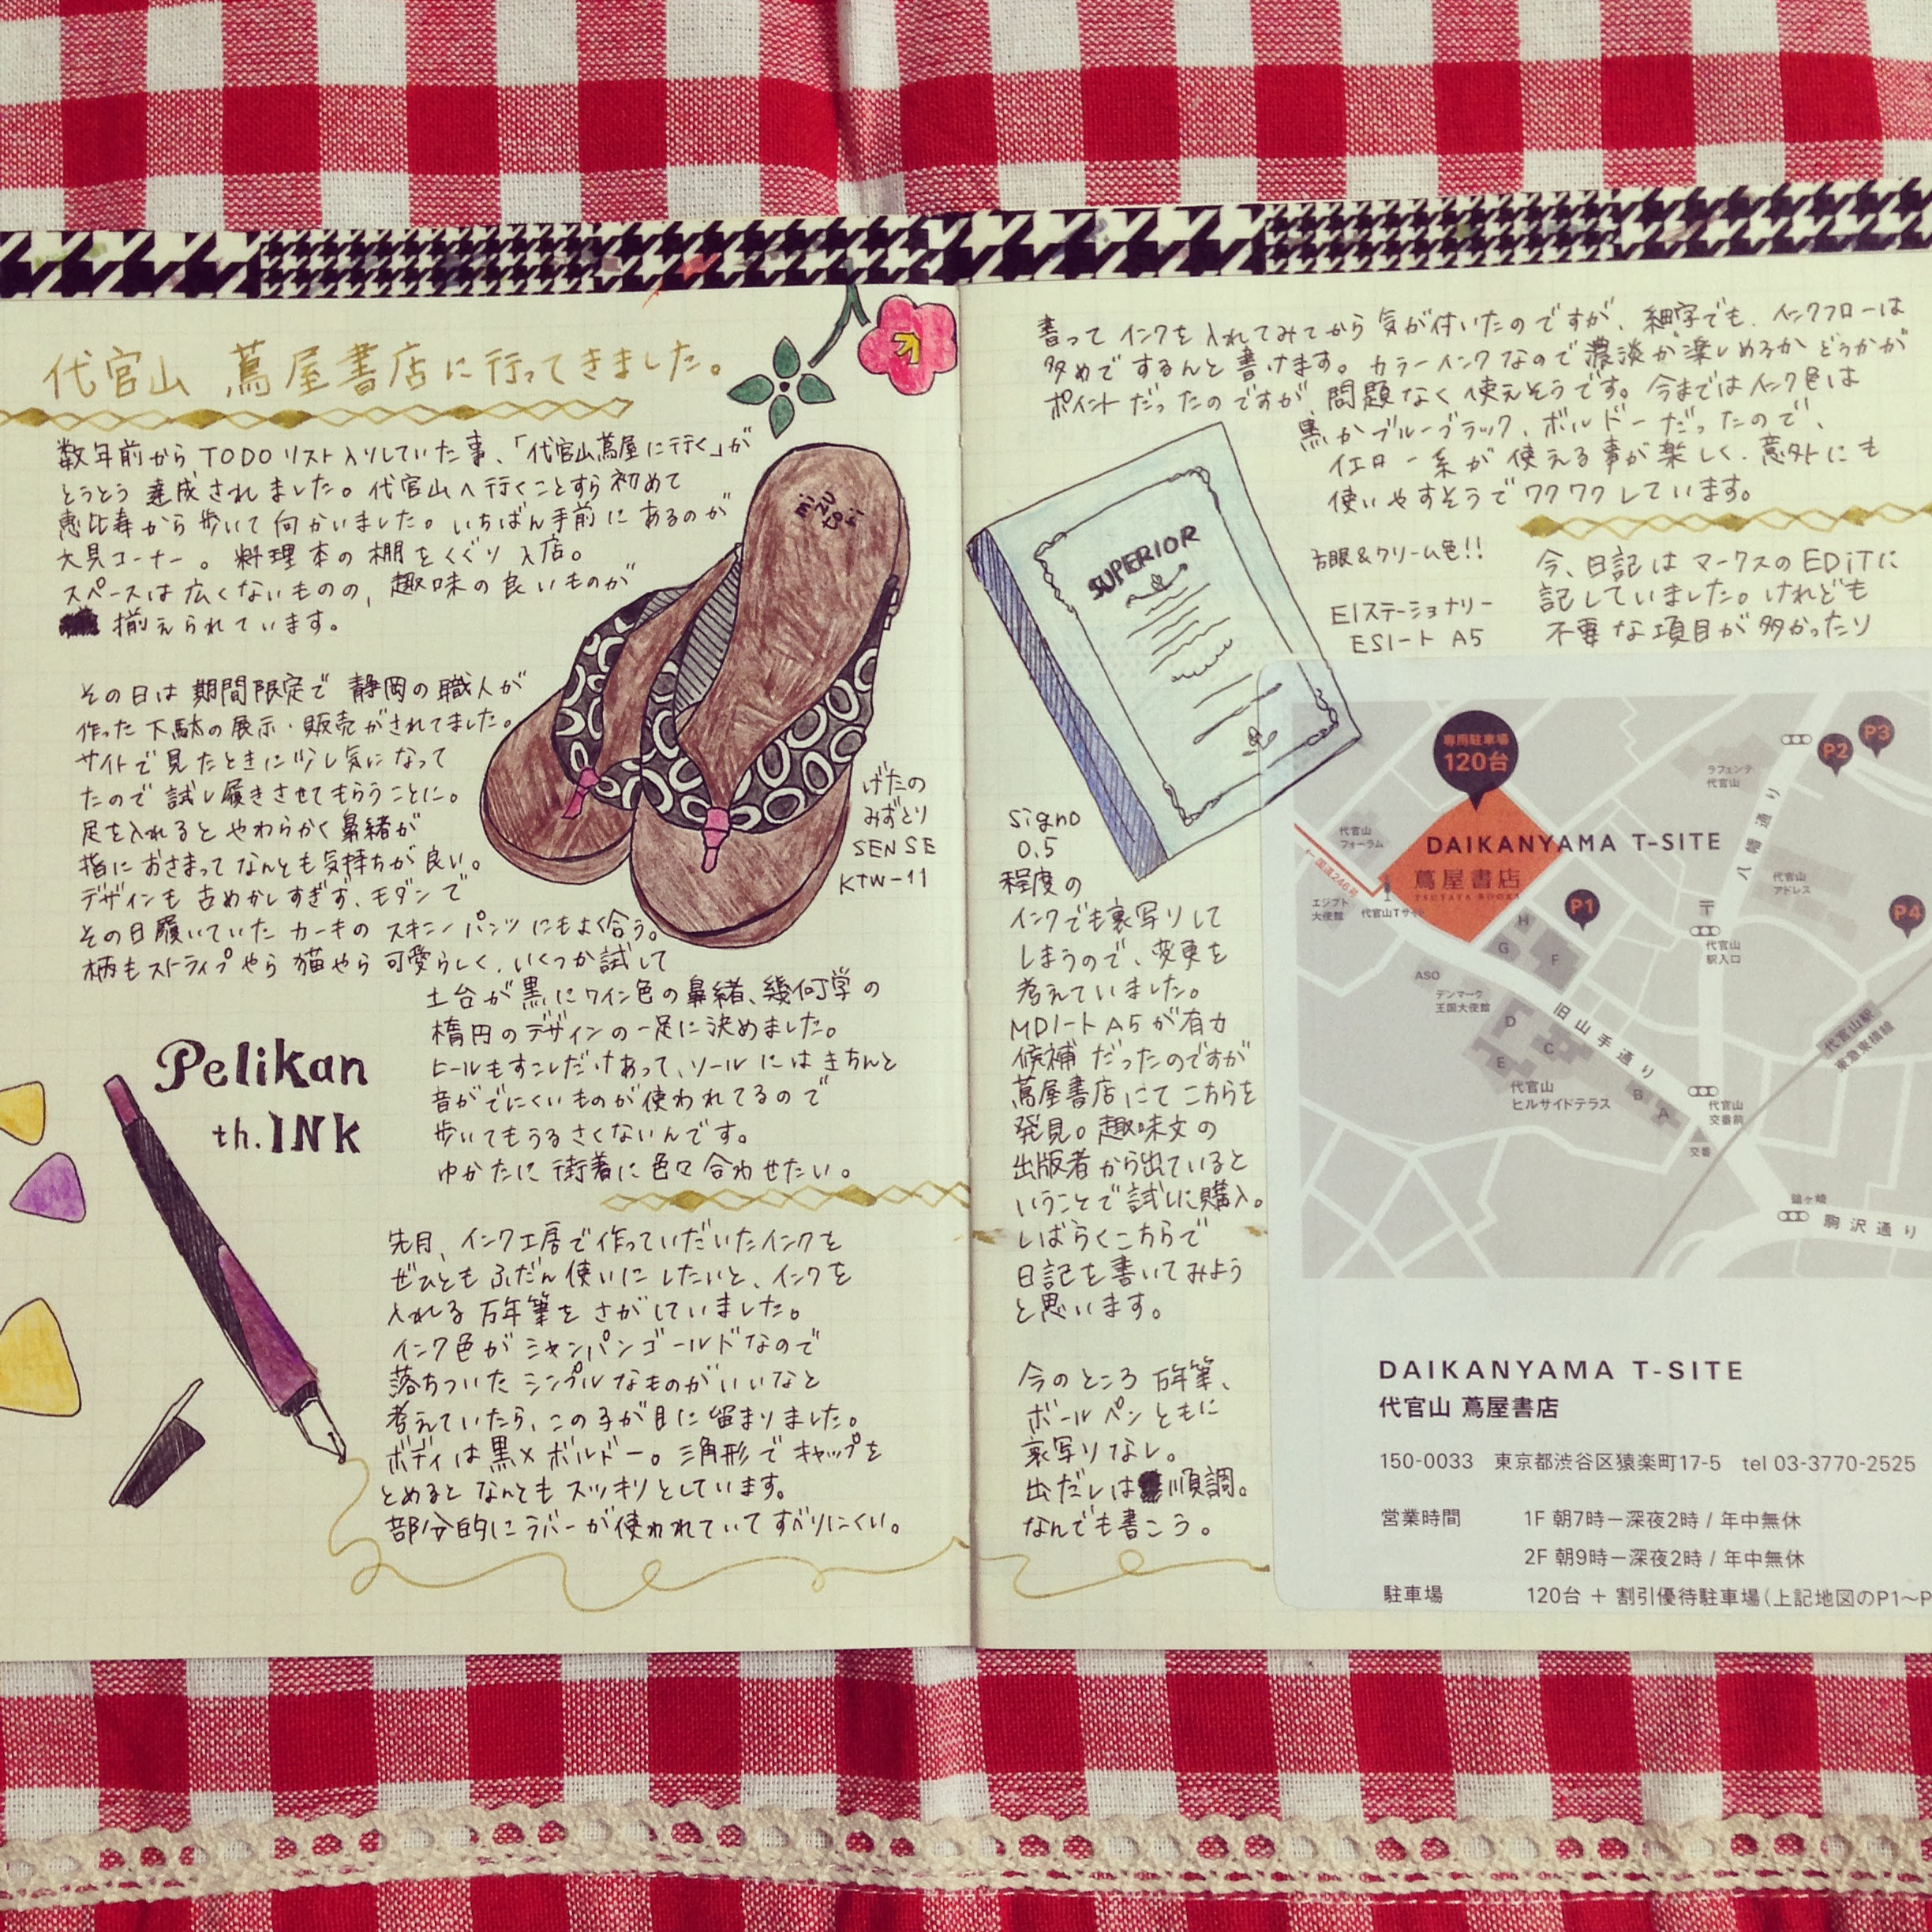 代官山 蔦屋書店に行ってきました。
数年前からTODOリスト入りしていた事、「代官山蔦屋に行く」が
とうとう達成されました。代官山へ行くことすら初めて
恵比寿から歩いて向かいました。いちばん手前にあるのが
文具コーナー。料理本の棚をくぐり入店。
スペースは広くないものの、趣味の良いものが
揃えられています。
その日は期間限定で静岡の職人が
作った下駄の展示・販売がされてました。
サイトで見たときに少し気になって
たので試し履きさせてもらうことに。
足を入れるとやわらかく鼻緒が
指におさまってなんとも気持ちが良い。
デザインも古めかしすぎず、モダンで
その日履いていたカーキのスキニーパンツにもよく合う。
柄もストライプやら猫やら可愛らしく、いくつか試して
土台が黒にワイン色の鼻緒、幾何学の
楕円のデザインの一足に決めました。
ヒールもすこしだけあって、ソールにはきちんと
音がでにくいものが使われてるので
歩いてもうるさくないんです。
ゆかたに街着に色々合わせたい。
mi
zu
tori
げたの
みずとり
SENSE
KTW-11
Pelikan
th.INK
先月、インク工房で作っていだいたインクを
ぜひともふだん使いにしたいと、インクを
入れる万年筆をさがしていました。
インク色がシャンパンゴールドなので
落ちついたシンプルなものがいいなと
考えていたら、この子が目に留まりました。
ボディは黒×ボルドー。三角形でキャップを
とめるとなんともスッキリとしています。
部分的にラバーが使われていてすべりにくい。
書って インクを入れてみてから気が付いたのですが、細字でも、インクフローは
多めでするんと書けます。カラーインクなので濃淡が楽しめるかどうかが
ポイントだったのですが、問題なく使えそうです。今まではインク色は
黒かブルーブラック、ボルドーだったので、
イエロー系が使える事が楽しく、意外にも
使いやすそうでワクワクしています。
SUPERIOR
方眼&クリーム色!!
EIステーショナリー
ESノート A5
今、日記はマークスのEDiTに
記していました。けれども
不要な項目が多かったり
signo
0.5
程度の
インクでも裏写りして
しまうので、変更を
考えていました。
MDノートA5が有力
候補だったのですが
蔦屋書店にてこちらを
発見。趣味文の
出版者から出ていると
いうことで試しに購入。
しばらくこちらで
日記を書いてみよう
と思います。
今のところ万年筆、
ボールペンともに
裏写りなし。
出だしは順調。
なんでも書こう。
専用駐車場
120台
P2
P3
ラフェンテ
代官山
八幡通り
代官山
フォーラム
DAIKANYAMA T-SITE
蔦屋書店
TSUTAYA BOOKS
国道246号
エジプト
大使館
代官山Tサイト
代官山
アドレス
P1
P4
H
G
F
代官山
駅入口
ASO
デンマーク
王国大使館
旧山手通り
D
C
E
B
A
代官山駅
東急東横線
代官山
ヒルサイドテラス
代官山
交番前
交番
鎗ヶ崎
駒沢通り
DAIKANYAMA T-SITE
代官山 蔦屋書店
150-0033 東京都渋谷区猿楽町17-5 tel 03-3770-2525
営業時間 1F 朝7時ー深夜2時 / 年中無休
2F 朝9時ー深夜2時 / 年中無休
駐車場 120台 + 割引優待駐車場(上記地図のP1〜P